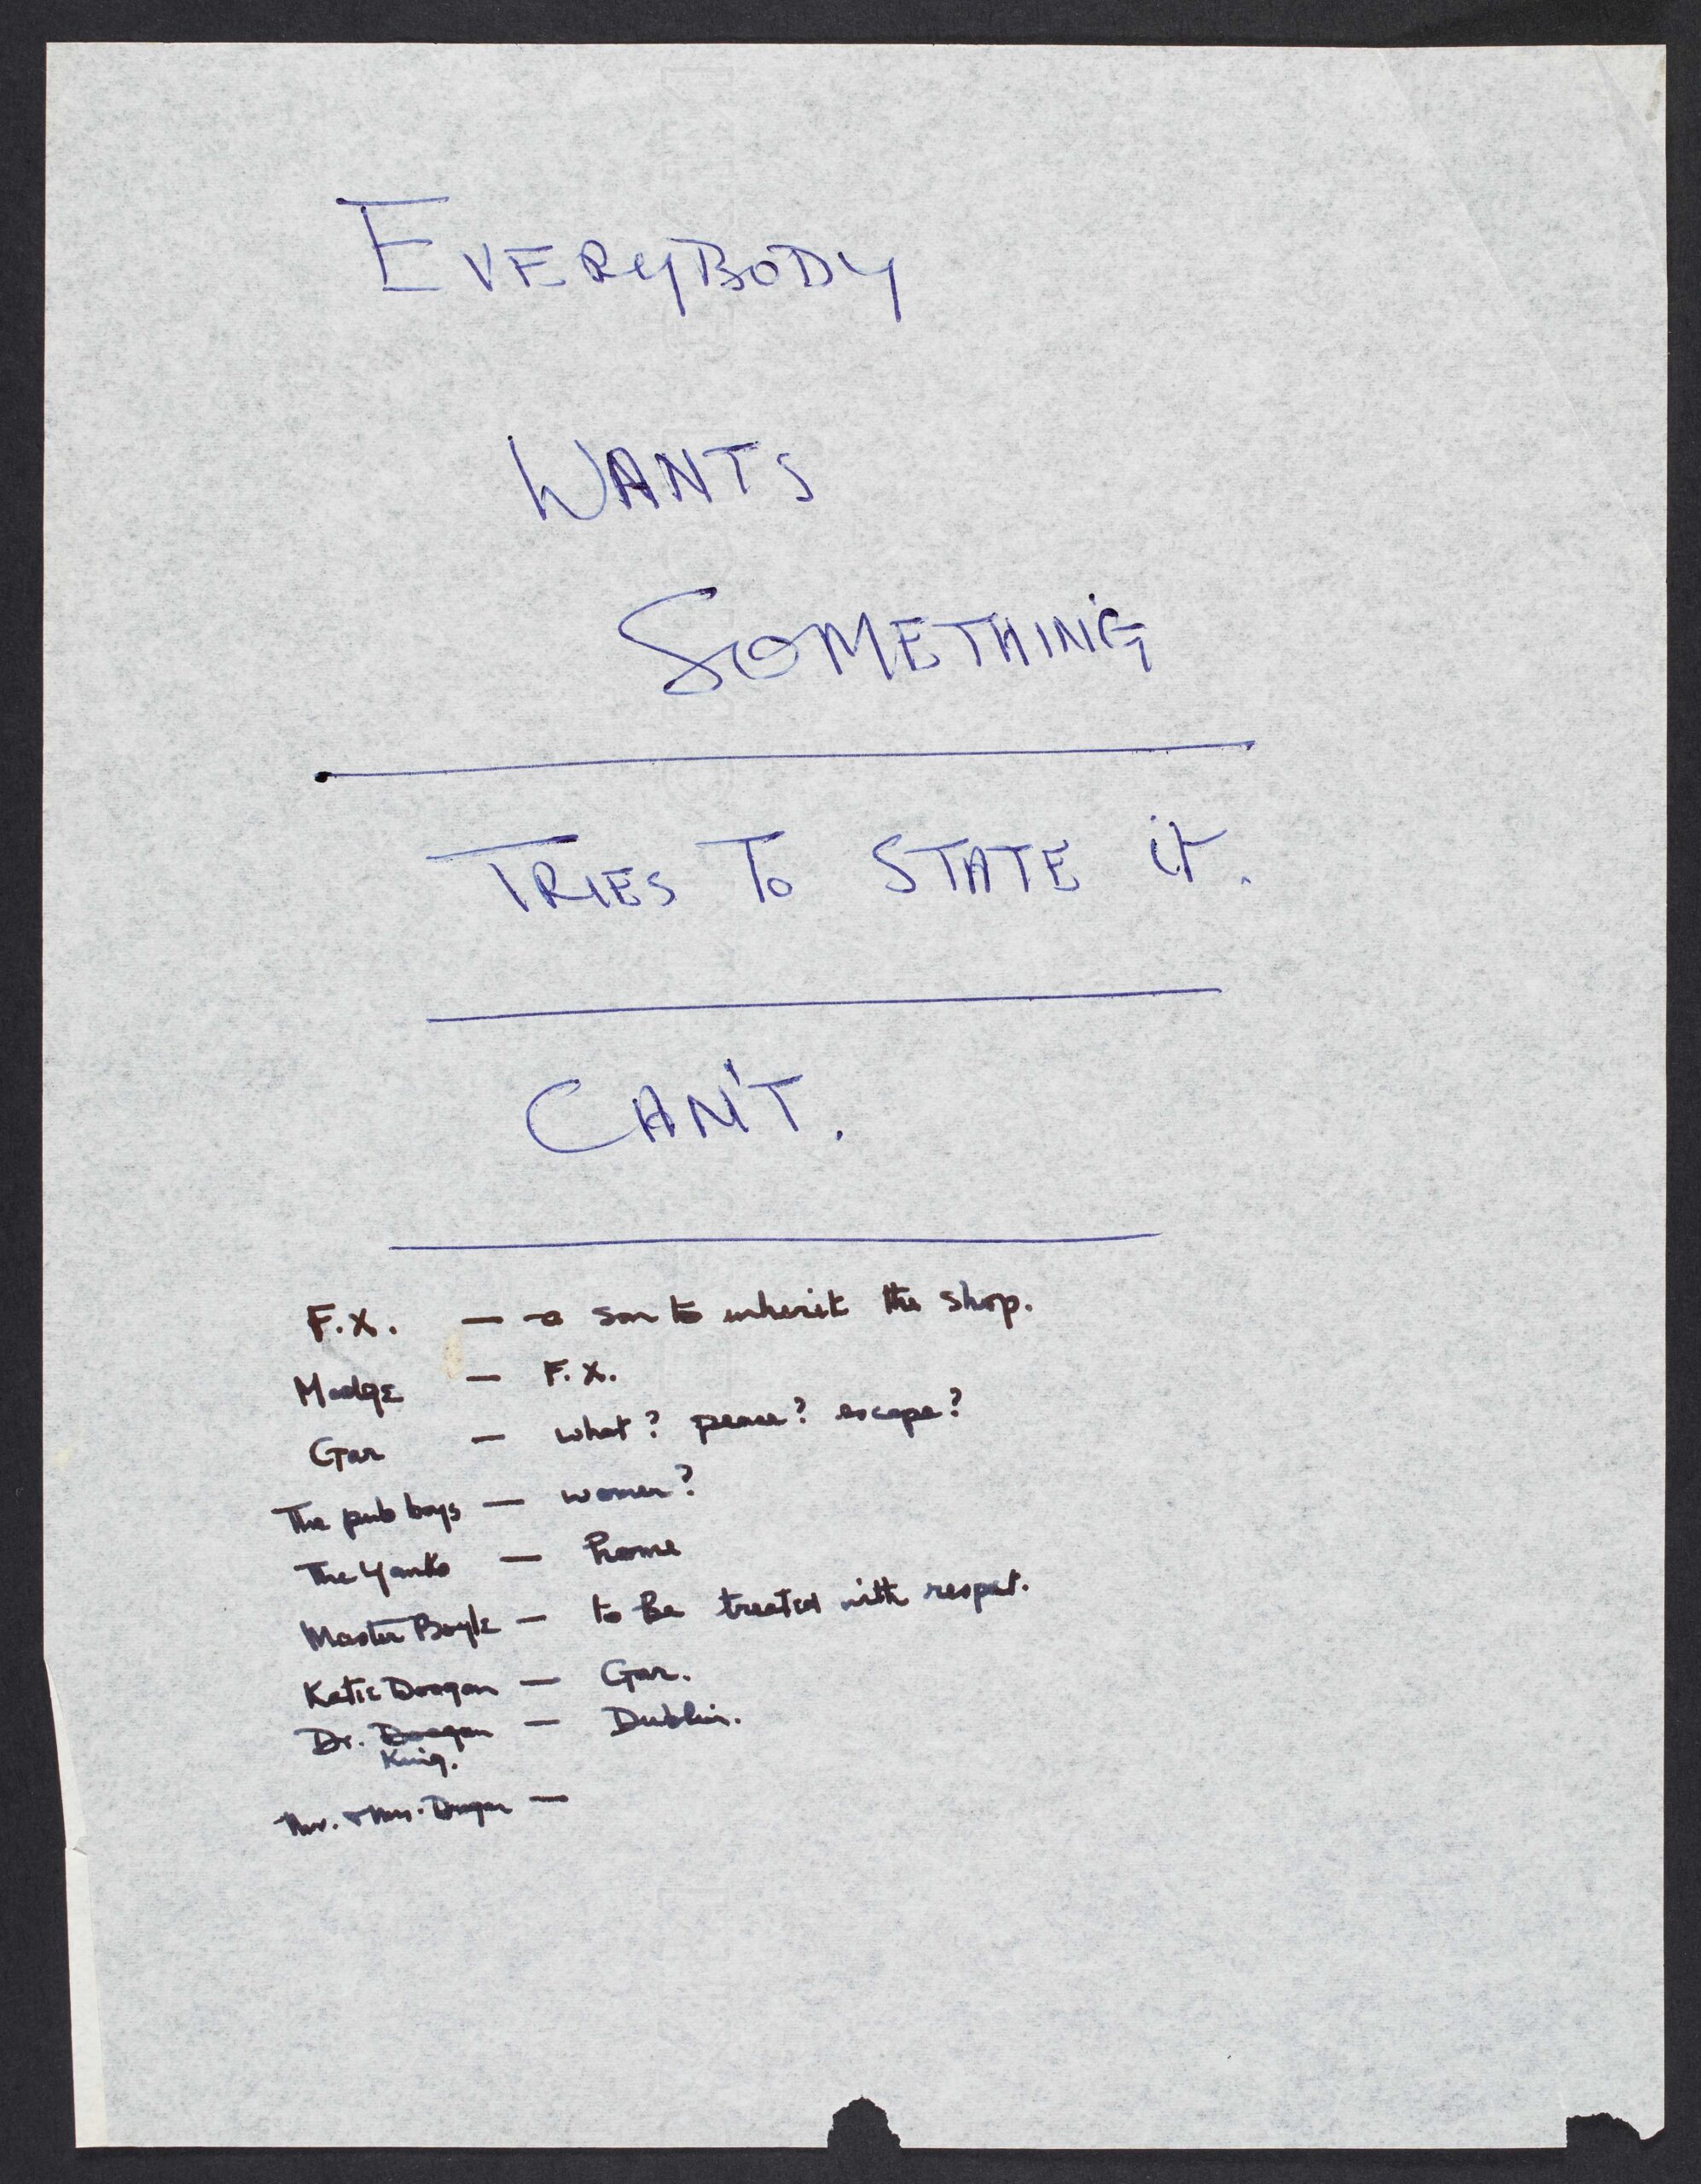 EVERYBODY
WANTS
SOMETHING
TRIES TO STATE it.
CAN'T.
F.X. — a son to inherit the shop.
Madge — F.X.
Gar — what? peace? escape?
The pub boys — women?
The Yanks — home
Master Boyle — to be treated with respect.
Katie Doogan — Gar.
Dr. Doogan — Dublin.
King.
Mr. & Mrs. Doogan —